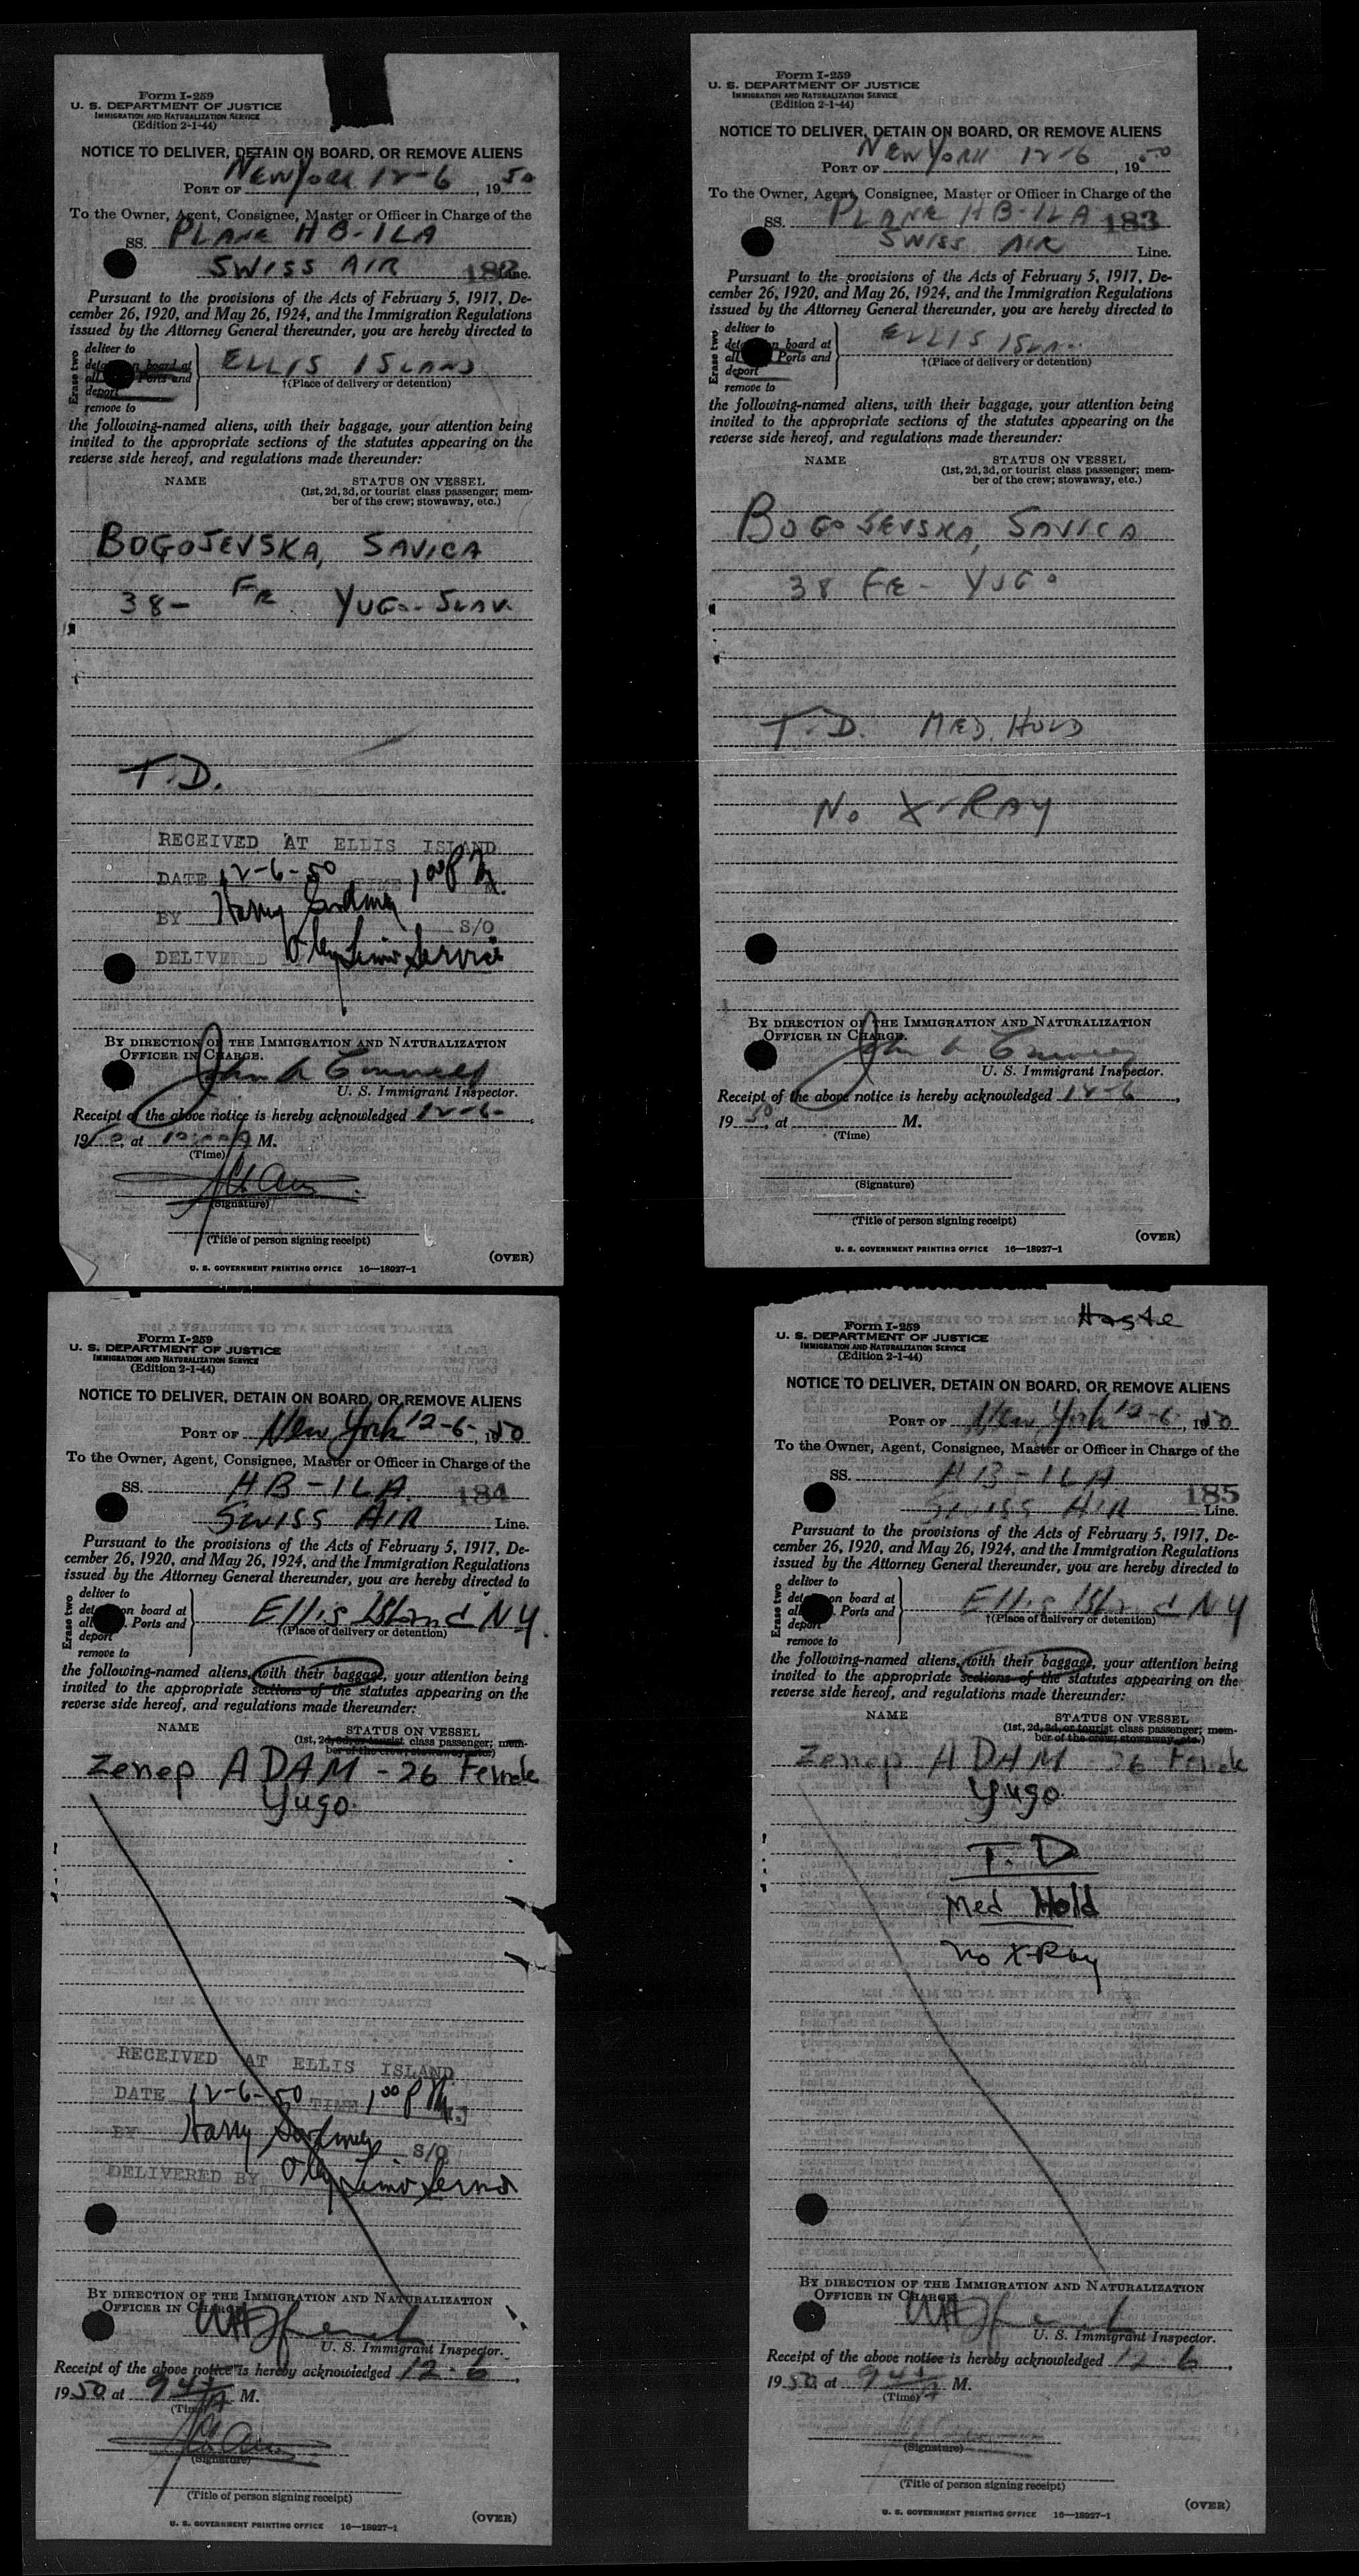 Form I-259
U. S. DEPARTMENT OF JUSTICE
IMMIGRATION AND NATURALIZATION SERVICE
(Edition 2-1-44)
NOTICE TO DELIVER, DETAIN ON BOARD, OR REMOVE ALIENS
PORT OF New York 12-6, 1950
To the Owner, Agent, Consignee, Master or Officer in Charge of the
SS. PLANE HB-ILA
SWISS AIR 182 Line.
Pursuant to the provisions of the Acts of February 5, 1917, De-
cember 26, 1920, and May 26, 1924, and the Immigration Regulations
issued by the Attorney General thereunder, you are hereby directed to
Erase two
deliver to
on board at
all Ports and
deport
remove to
ELLIS ISLAND
†(Place of delivery or detention)
the following-named aliens, with their baggage, your attention being
invited to the appropriate sections of the statutes appearing on the
reverse side hereof, and regulations made thereunder:
NAME STATUS ON VESSEL
(1st, 2d, 3d, or tourist class passenger; mem-
ber of the crew; stowaway, etc.)
BOGOJEVSKA, SAVICA
38- FE YUGO-SLAV.
T.D.
RECEIVED AT ELLIS ISLAND
DATE 12-6-50 TIME 1,00 P M.
BY Harry S/O
DELIVERED
BY DIRECTION OF THE IMMIGRATION AND NATURALIZATION
OFFICER IN CHARGE.
John
U. S. Immigrant Inspector.
Receipt of the above notice is hereby acknowledged 12-6-,
1950, at 10:00 A M.
(Time)
(Signature)
(Title of person signing receipt)
(OVER)
U. S. GOVERNMENT PRINTING OFFICE 16—18927-1
Form I-259
U. S. DEPARTMENT OF JUSTICE
IMMIGRATION AND NATURALIZATION SERVICE
(Edition 2-1-44)
NOTICE TO DELIVER, DETAIN ON BOARD, OR REMOVE ALIENS
PORT OF NEW YORK 12-6, 1950
To the Owner, Agent, Consignee, Master or Officer in Charge of the
SS. PLANE HB-ILA 183
SWISS AIR Line.
Pursuant to the provisions of the Acts of February 5, 1917, De-
cember 26, 1920, and May 26, 1924, and the Immigration Regulations
issued by the Attorney General thereunder, you are hereby directed to
Erase two
deliver to
on board at
all Ports and
deport
remove to
ELLIS ISLAN
†(Place of delivery or detention)
the following-named aliens, with their baggage, your attention being
invited to the appropriate sections of the statutes appearing on the
reverse side hereof, and regulations made thereunder:
NAME STATUS ON VESSEL
(1st, 2d, 3d, or tourist class passenger; mem-
ber of the crew; stowaway, etc.)
BOGOJEVSKA, SAVICA
38 FE- YUGO
T.D. MED. HOLD
NO X-RAY
BY DIRECTION OF THE IMMIGRATION AND NATURALIZATION
OFFICER IN CHARGE.
John
U. S. Immigrant Inspector.
Receipt of the above notice is hereby acknowledged 12-6,
1950, at M.
(Time)
(Signature)
(Title of person signing receipt)
(OVER)
U. S. GOVERNMENT PRINTING OFFICE 16—18927-1
Form I-259
U. S. DEPARTMENT OF JUSTICE
IMMIGRATION AND NATURALIZATION SERVICE
(Edition 2-1-44)
NOTICE TO DELIVER, DETAIN ON BOARD, OR REMOVE ALIENS
PORT OF New York 12-6-, 1950
To the Owner, Agent, Consignee, Master or Officer in Charge of the
SS. HB-ILA 184
SWISS AIR Line.
Pursuant to the provisions of the Acts of February 5, 1917, De-
cember 26, 1920, and May 26, 1924, and the Immigration Regulations
issued by the Attorney General thereunder, you are hereby directed to
Erase two
deliver to
on board at
all Ports and
deport
remove to
Ellis Island NY.
†(Place of delivery or detention)
the following-named aliens, with their baggage, your attention being
invited to the appropriate sections of the statutes appearing on the
reverse side hereof, and regulations made thereunder:
NAME STATUS ON VESSEL
(1st, 2d, 3d, or tourist class passenger; mem-
ber of the crew; stowaway, etc.)
Zenep ADAM - 26 Female
Yugo.
RECEIVED AT ELLIS ISLAND
DATE 12-6-50 TIME 1,00 P M.
BY Harry S/O
DELIVERED BY
BY DIRECTION OF THE IMMIGRATION AND NATURALIZATION
OFFICER IN CHARGE
U. S. Immigrant Inspector.
Receipt of the above notice is hereby acknowledged 12-6,
1950 at 9 45 A M.
(Time)
(Signature)
(Title of person signing receipt)
(OVER)
U. S. GOVERNMENT PRINTING OFFICE 16—18927-1
Haste
Form I-259
U. S. DEPARTMENT OF JUSTICE
IMMIGRATION AND NATURALIZATION SERVICE
(Edition 2-1-44)
NOTICE TO DELIVER, DETAIN ON BOARD, OR REMOVE ALIENS
PORT OF New York 12-6-, 1950
To the Owner, Agent, Consignee, Master or Officer in Charge of the
SS. HB-ILA
SWISS AIR 185 Line.
Pursuant to the provisions of the Acts of February 5, 1917, De-
cember 26, 1920, and May 26, 1924, and the Immigration Regulations
issued by the Attorney General thereunder, you are hereby directed to
Erase two
deliver to
on board at
all Ports and
deport
remove to
Ellis Island NY
†(Place of delivery or detention)
the following-named aliens, with their baggage, your attention being
invited to the appropriate sections of the statutes appearing on the
reverse side hereof, and regulations made thereunder:
NAME STATUS ON VESSEL
(1st, 2d, 3d, or tourist class passenger; mem-
ber of the crew; stowaway, etc.)
Zenep ADAM 26 Female
Yugo.
T. D
Med Hold
no X-Ray
BY DIRECTION OF THE IMMIGRATION AND NATURALIZATION
OFFICER IN CHARGE
U. S. Immigrant Inspector.
Receipt of the above notice is hereby acknowledged 12-6,
1950, at 9 45 A M.
(Time)
(Signature)
(Title of person signing receipt)
(OVER)
U. S. GOVERNMENT PRINTING OFFICE 16—18927-1